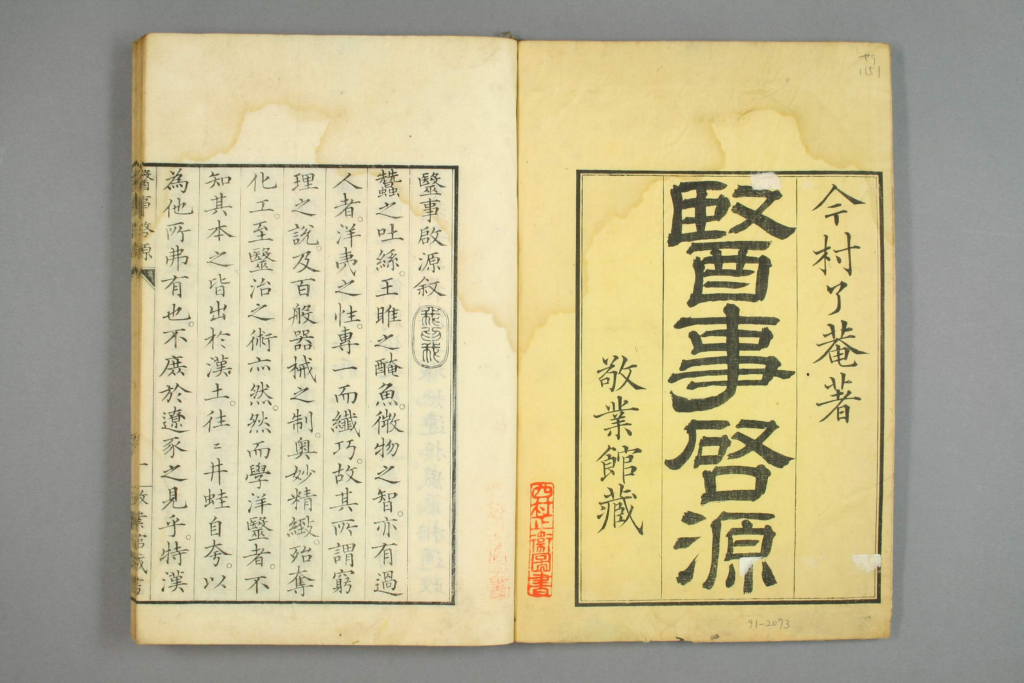 今村了菴著
醫事啓源
敬業館藏
毉事啟源叙
蠶之吐絲。王雎之醃魚。微物之智。亦有過
人者。洋夷之性。專一而纖巧。故其所謂窮
理之說。及百般器械之制。奧妙精緻。殆奪
化工。至毉治之術亦然。然而學洋毉者。不
知其本之皆出於漢土。往〻井蛙自夸。以
為他所弗有也。不廣於遼豕之見乎。特漢
醫事啓源
一
敬業館藏書
91-2093